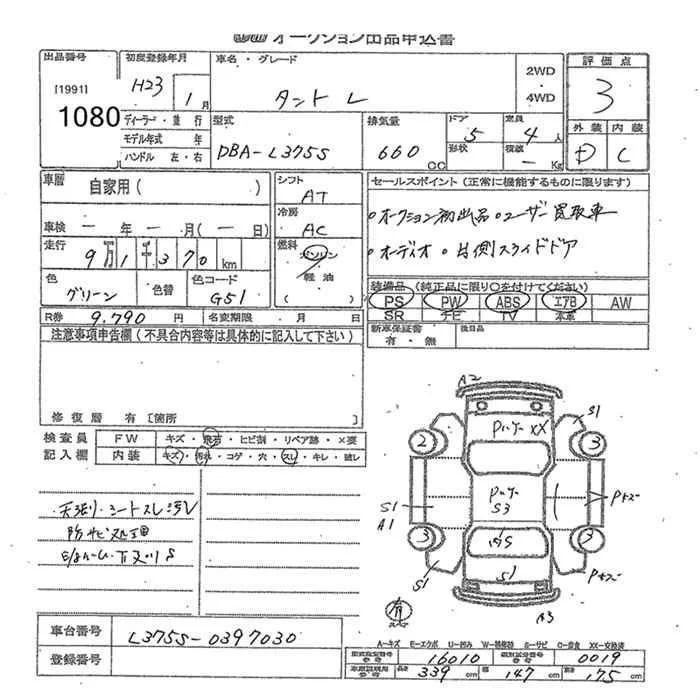 オークション出品申込書
出品番号
[1991]
1080
初度登録年月
H23 1月
車名・グレード
タント L
2WD
・
4WD
評価点
3
外装 内装
D C
ディーラー・並行
モデル年式 年
ハンドル 左・右
型式
DBA-L375S
排気量
660 cc
ドア
5
形状
定員
4人
積載
- Kg
車歴
自家用( )
車検 - 年 - 月(- 日)
走行
9万1千370km
色
グリーン
色替
色コード
G51
シフト
AT
冷房
AC
燃料
ガソリン
軽油
( )
セールスポイント(正常に機能するものに限ります)
・オークション初出品・ユーザー買取車
・オーディオ・片側スライドドア
装備品(純正品に限り○を付けてください)
PS PW ABS エアB AW
SR ナビ TV 本革
新車保証書
有・無
後日品
R券 9,790円 名変期限 月 日
注意事項申告欄(不具合内容等は具体的に記入して下さい)
修復歴 有〔箇所 〕
検査員
記入欄
FW キズ・飛石・ヒビ割・リペア跡・×要
内装 キズ・汚れ・コゲ・穴・スレ・キレ・破レ
天張り・シートスレ汚レ
防サビ処理
A2
S1
パーツ XX
2 3
パーツ
S3
S1
A1
3 3
S1
S1
A3
有
車台番号 L375S-0397030
登録番号
A-キズ E-エクボ U-凹み W-補修跡 S-サビ C-腐食 XX-交換済
型式指定番号 16010 類別区分番号 0019
長さ 339cm 幅 147cm 高さ 175cm